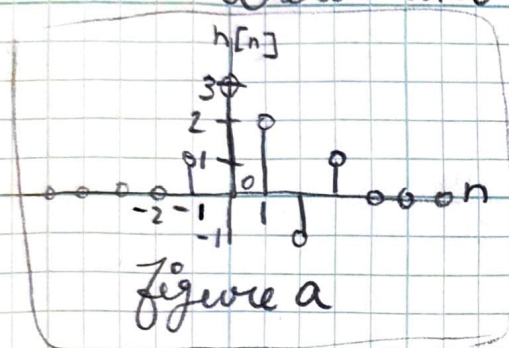 h[n]
3
2
1
0
n
-2 -1 1
-1
figure a